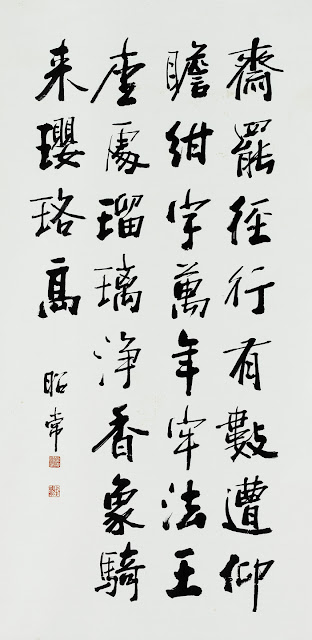 齋罷徑行有數遭仰
瞻紺宇萬年牢法王
座處瑠璃淨香象騎
来瓔珞高
昭常